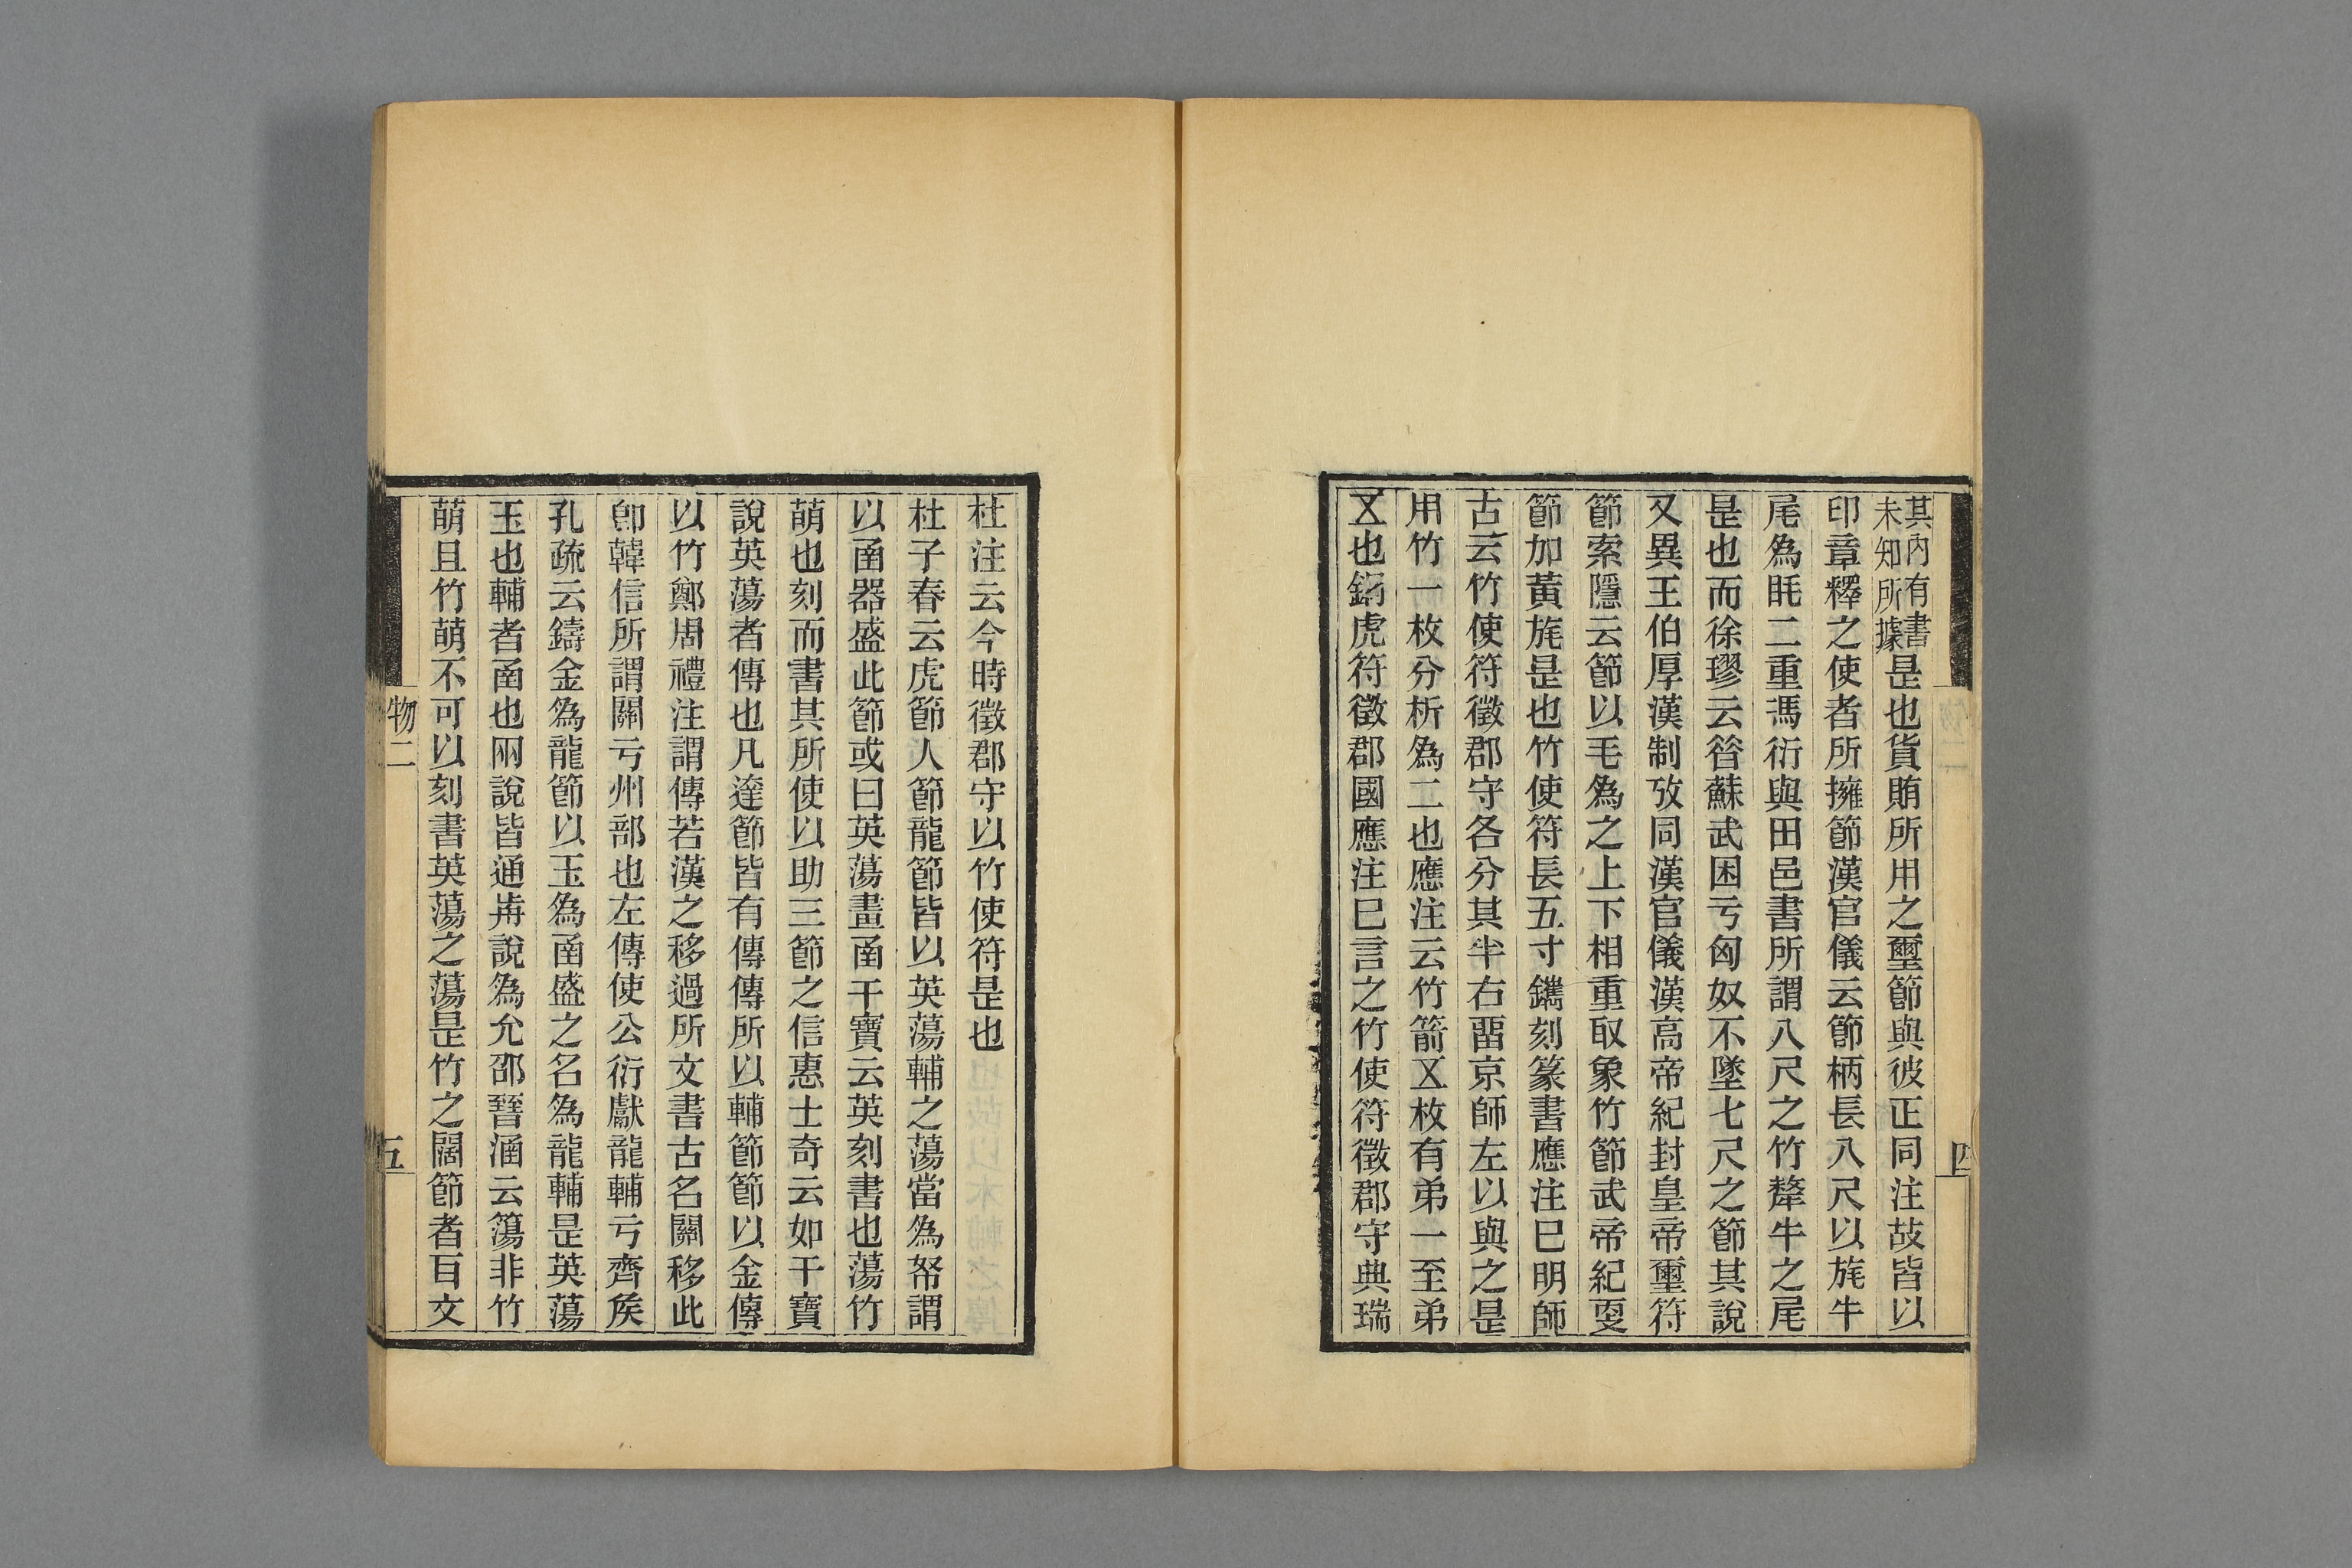 其内有書
未知所據
是也貨賄所用之璽節與彼正同注故皆以
印章釋之使者所擁節漢官儀云節柄長八尺以旄牛
尾為眊二重馮衍與田邑書所謂八尺之竹犛牛之尾
是也而徐璆云昝蘇武困亏匈奴不墜七尺之節其說
又異王伯厚漢制攷同漢官儀漢高帝紀封皇帝璽符
節索隱云節以毛為之上下相重取象竹節武帝紀㪅
節加黃旄是也竹使符長五寸鐫刻篆書應注巳明師
古云竹使符徵郡守各分其半右畱京師左以與之是
用竹一枚分析為二也應注云竹箭㐅枚有弟一至弟
㐅也銅虎符徵郡國應注巳言之竹使符徵郡守典瑞
四
杜注云今時徵郡守以竹使符是也
杜子春云虎節人節龍節皆以英蕩輔之蕩當為帑謂
以函器盛此節或曰英蕩畫函干寶云英刻書也蕩竹
萌也刻而書其所使以助三節之信惠士奇云如干寶
說英蕩者傳也凡達節皆有傳傳所以輔節節以金傳
以竹鄭周禮注謂傳若漢之移過所文書古名關移此
卽韓信所謂關亏州部也左傳使公衍獻龍輔亏齊矦
孔疏云鑄金為龍節以玉為函盛之名為龍輔是英蕩
玉也輔者函也兩說皆通歬說為允邵晉涵云簜非竹
萌且竹萌不可以刻書英蕩之蕩是竹之闊節者目文
物二
五